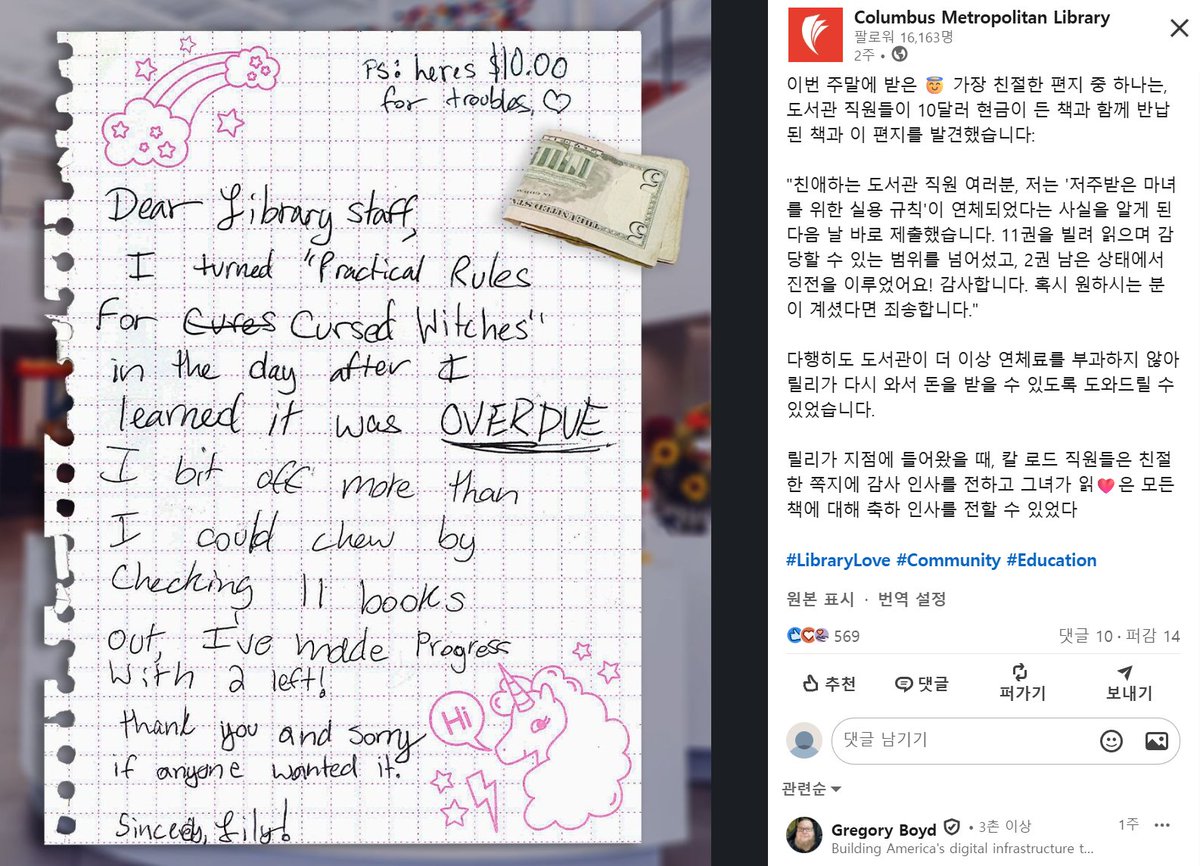 PS: heres $10.00
for troubles ♡
Dear Library staff,
I turned "Practical Rules
For Cures Cursed Witches"
in the day after I
learned it was OVERDUE
I bit off more than
I could chew by
Checking 11 books
out, I've made Progress
With 2 left!
thank you and sorry
if anyone wanted it.
Sincerely, Lily!
Hi
5
5
Columbus Metropolitan Library
팔로워 16,163명
2주 •
이번 주말에 받은 😇 가장 친절한 편지 중 하나는,
도서관 직원들이 10달러 현금이 든 책과 함께 반납
된 책과 이 편지를 발견했습니다:
"친애하는 도서관 직원 여러분, 저는 '저주받은 마녀
를 위한 실용 규칙'이 연체되었다는 사실을 알게 된
다음 날 바로 제출했습니다. 11권을 빌려 읽으며 감
당할 수 있는 범위를 넘어섰고, 2권 남은 상태에서
진전을 이루었어요! 감사합니다. 혹시 원하시는 분
이 계셨다면 죄송합니다."
다행히도 도서관이 더 이상 연체료를 부과하지 않아
릴리가 다시 와서 돈을 받을 수 있도록 도와드릴 수
있었습니다.
릴리가 지점에 들어왔을 때, 칼 로드 직원들은 친절
한 쪽지에 감사 인사를 전하고 그녀가 읽❤️은 모든
책에 대해 축하 인사를 전할 수 있었다
#LibraryLove #Community #Education
원본 표시 · 번역 설정
569
댓글 10 · 퍼감 14
추천 댓글 퍼가기 보내기
댓글 남기기
관련순
Gregory Boyd • 3촌 이상
1주
Building America's digital infrastructure t...